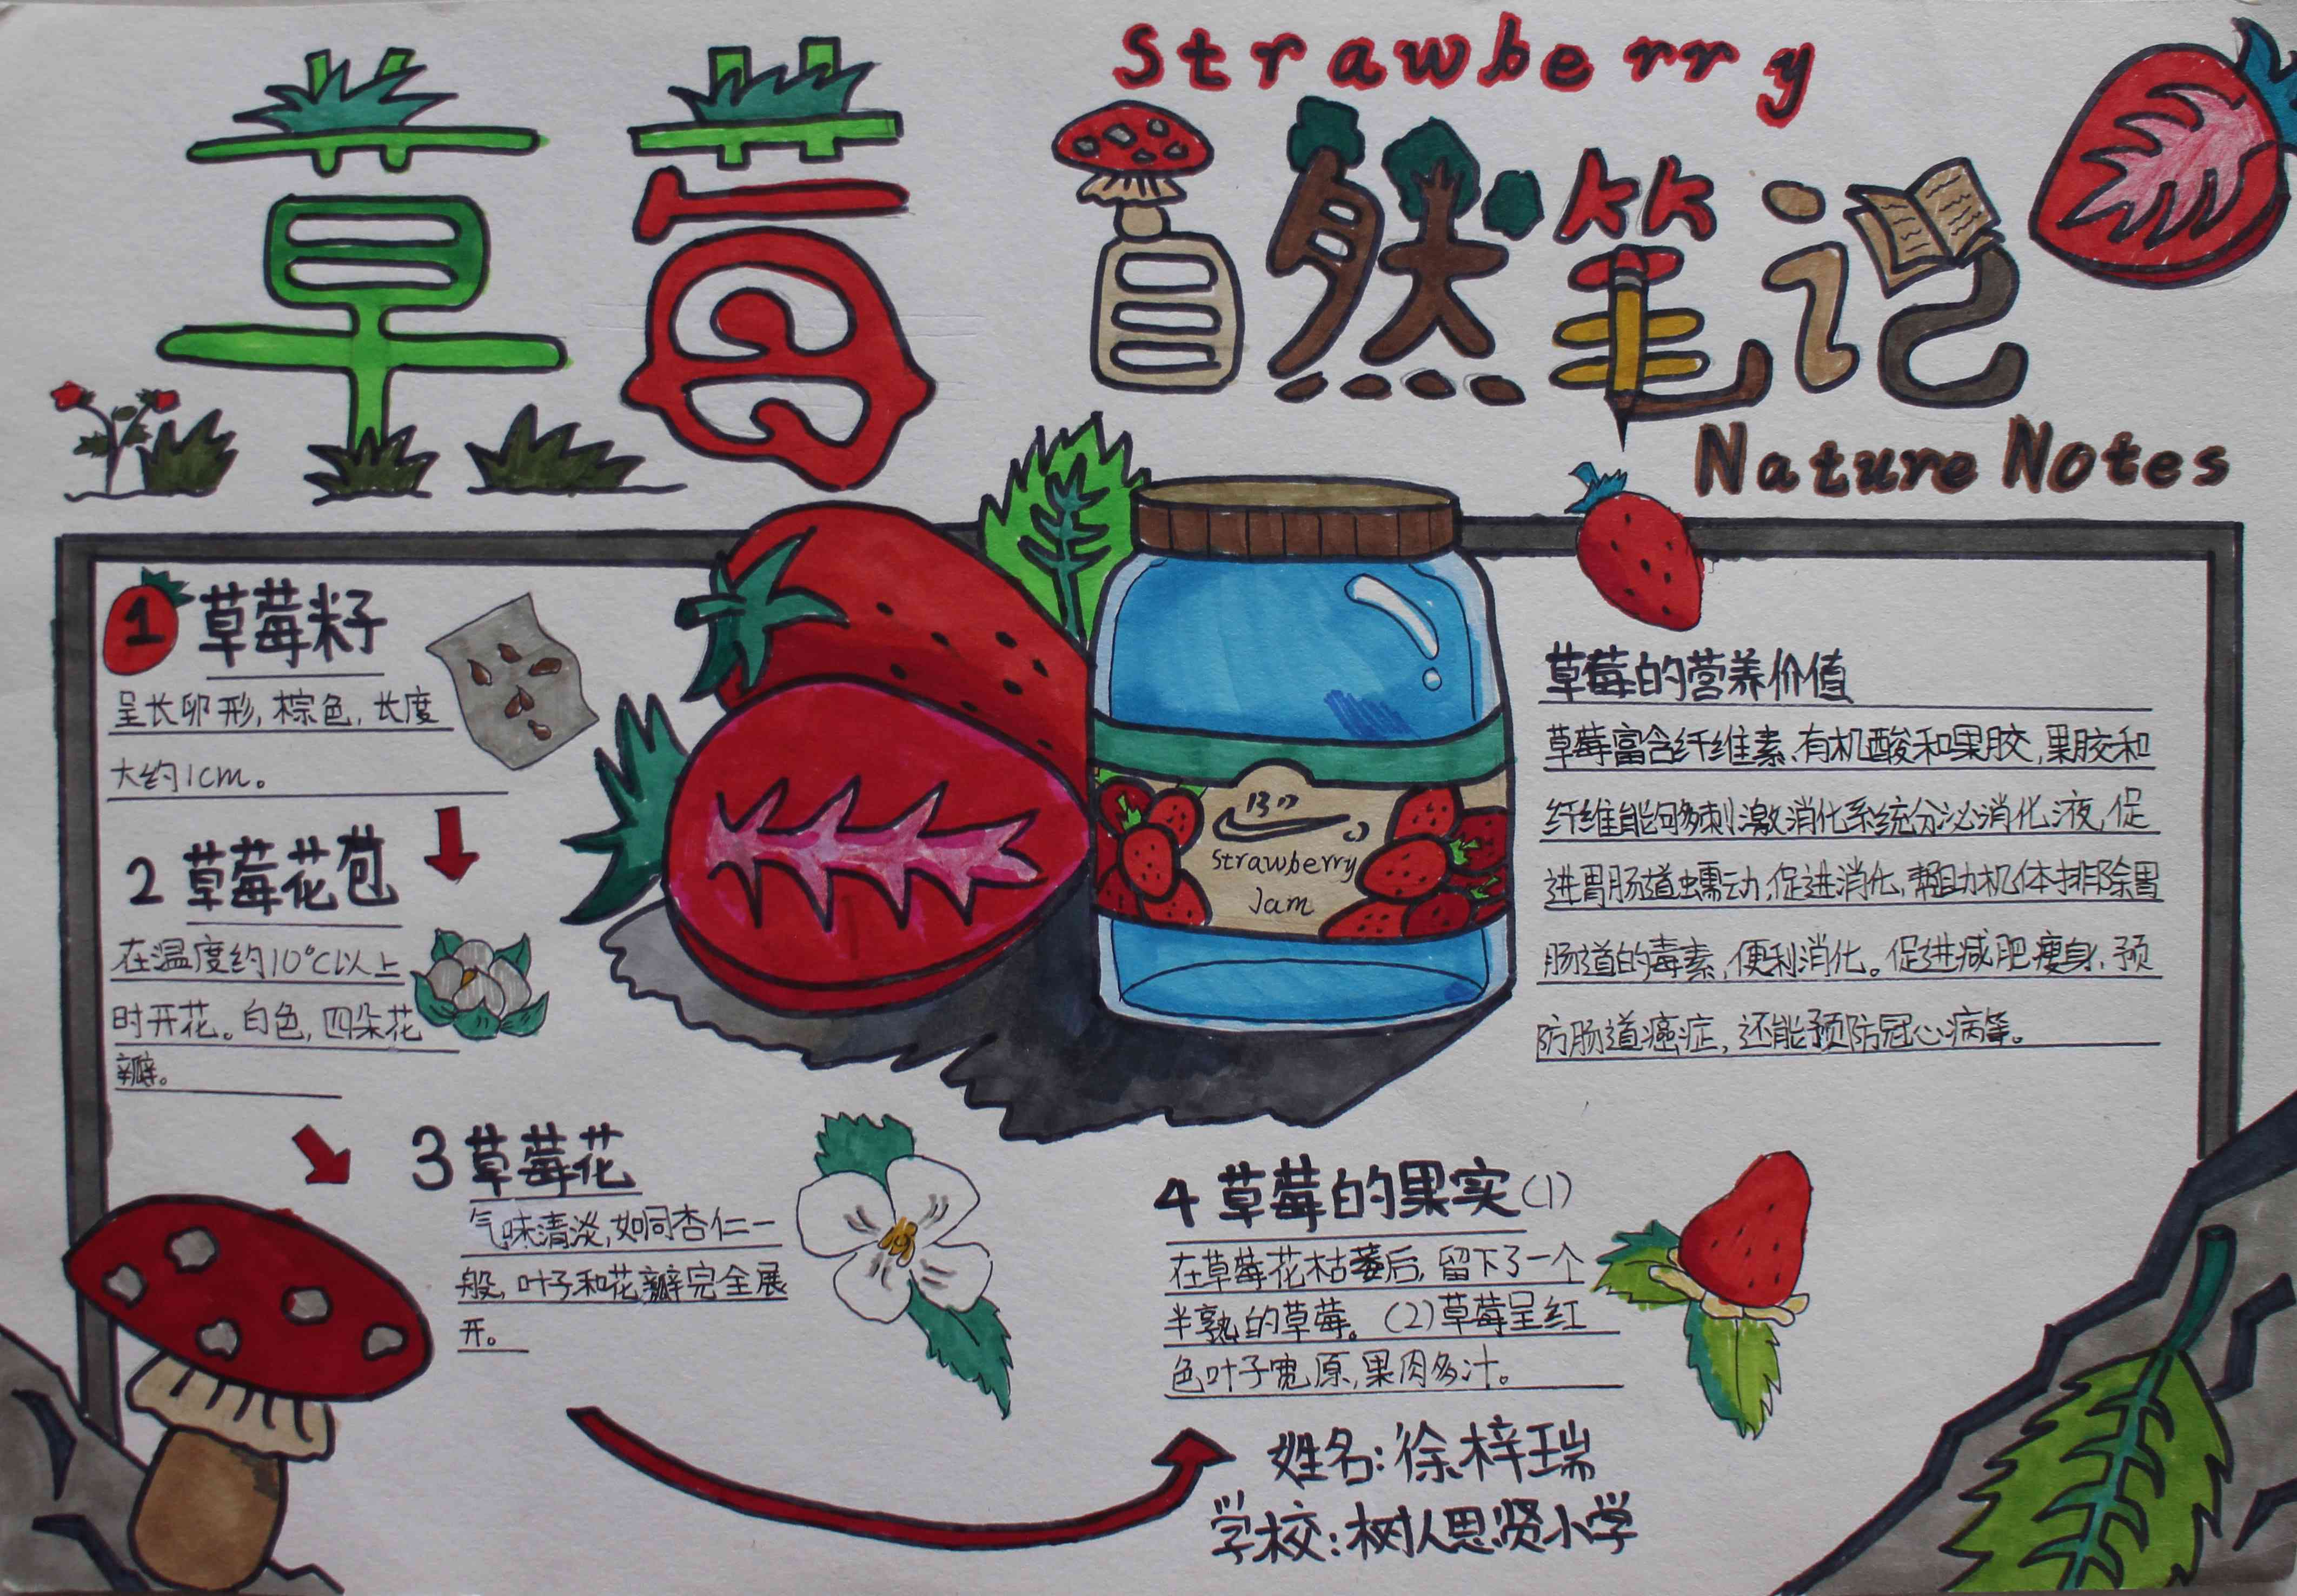 草莓
Strawberry
自然笔记
Nature Notes
1 草莓籽
呈长卵形,棕色,长度
大约1cm。
2 草莓花苞
在温度约10℃以上
时开花。白色,四朵花
瓣。
3 草莓花
气味清淡,如同杏仁一
般,叶子和花瓣完全展
开。
Strawberry
Jam
草莓的营养价值
草莓富含纤维素、有机酸和果胶,果胶和
纤维能够刺激消化系统分泌消化液,促
进胃肠道蠕动,促进消化,帮助机体排除胃
肠道的毒素,便利消化。促进减肥瘦身,预
防肠道癌症,还能预防冠心病等。
4 草莓的果实(1)
在草莓花枯萎后,留下了一个
半熟的草莓。(2)草莓呈红
色叶子宽原,果肉多汁。
姓名:徐梓瑞
学校:树人思贤小学